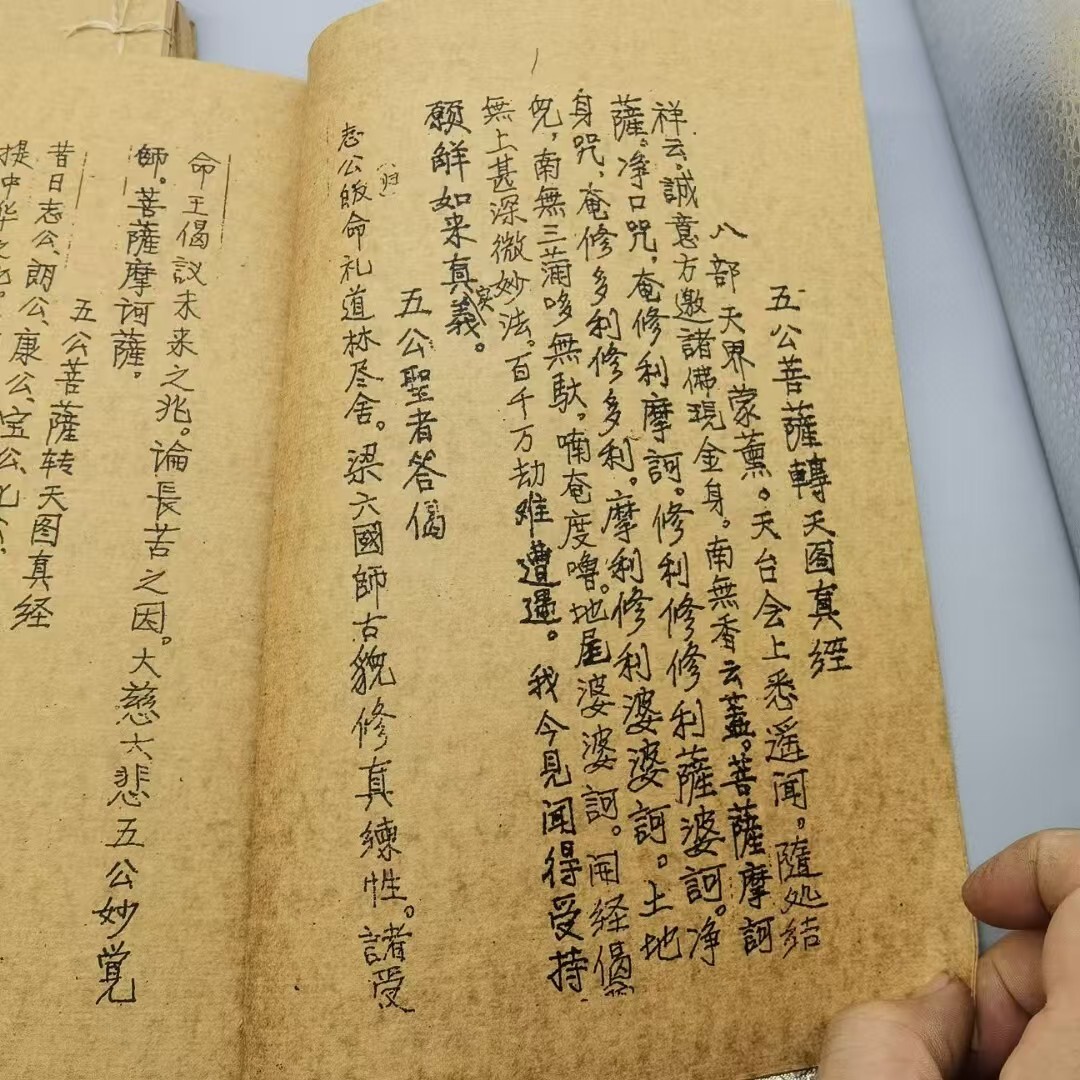 五公菩薩轉天图真經
八部天界蒙薰。天台会上悉遥闻。隨处結
祥云。誠意方邀諸佛現金身。南無香云盖。菩薩摩訶
薩。净口咒,奄修利摩訶。修利修修利薩婆訶。净
身咒,奄修多利修多利。摩利修利婆婆訶。土地
咒,南無三菡哆無馱。喃奄度嚕。地尾婆婆訶。開経偈
無上甚深微妙法。百千万劫难遭遇。我今見闻得受持
願觧如来真实義。
五公聖者答偈
志公皈(归)命礼道林尽舍。梁六國師古貌修真練性。諸受
命王偈議未来之兆。論長苦之因。大慈大悲五公妙覚
師。菩薩摩訶薩。
五公菩薩转天图真経
昔日志公、朗公、康公、宝公、化公、
提中华之地。